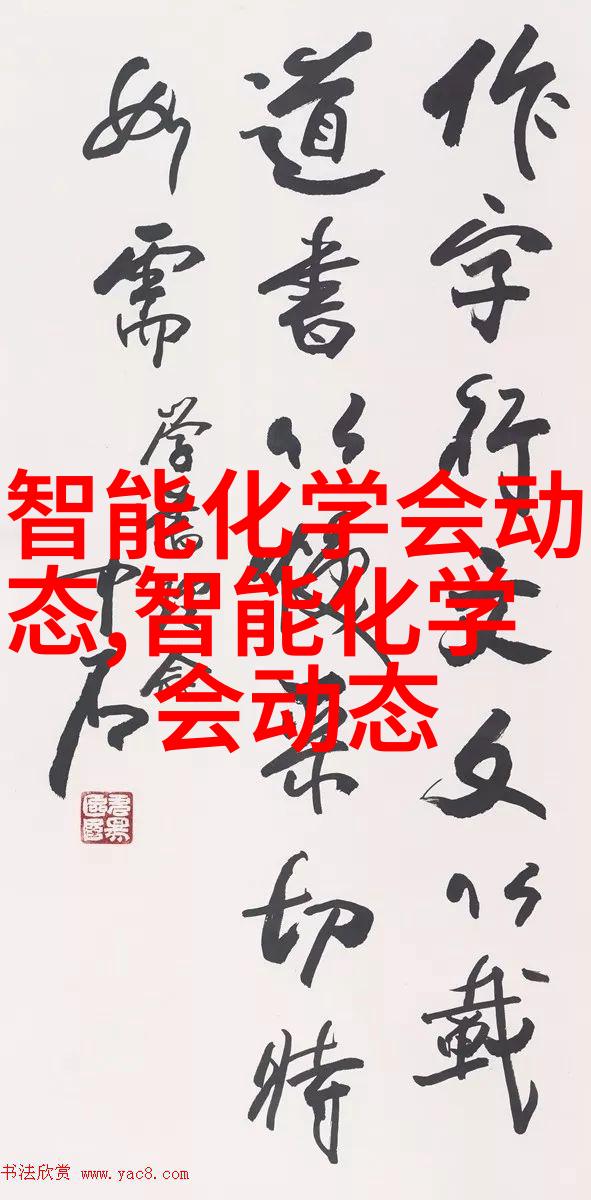 智能化学会动
态,智能化学
会动态
作字行文文以載
道書以煥采切時
如需
中石
书法欣赏 www.yac8.com